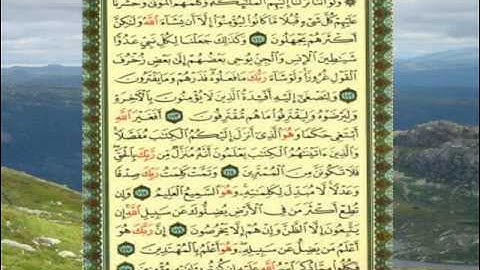 ۞ وَلَوْ أَنَّنَا نَزَّلْنَا إِلَيْهِمُ الْمَلَٰٓئِكَةَ وَكَلَّمَهُمُ الْمَوْتَىٰ وَحَشَرْنَا
عَلَيْهِمْ كُلَّ شَيْءٍ قُبُلًا مَّا كَانُوا لِيُؤْمِنُوا إِلَّا أَن يَشَاءَ اللَّهُ وَلَٰكِنَّ
أَكْثَرَهُمْ يَجْهَلُونَ ١١١ وَكَذَٰلِكَ جَعَلْنَا لِكُلِّ نَبِيٍّ عَدُوًّا
شَيَٰطِينَ الْإِنسِ وَالْجِنِّ يُوحِي بَعْضُهُمْ إِلَىٰ بَعْضٍ زُخْرُفَ
الْقَوْلِ غُرُورًا وَلَوْ شَاءَ رَبُّكَ مَا فَعَلُوهُ فَذَرْهُمْ وَمَا يَفْتَرُونَ
١١٢ وَلِتَصْغَىٰ إِلَيْهِ أَفْئِدَةُ الَّذِينَ لَا يُؤْمِنُونَ بِالْآخِرَةِ
وَلِيَرْضَوْهُ وَلِيَقْتَرِفُوا مَا هُم مُّقْتَرِفُونَ ١١٣ أَفَغَيْرَ اللَّهِ
أَبْتَغِي حَكَمًا وَهُوَ الَّذِي أَنزَلَ إِلَيْكُمُ الْكِتَٰبَ مُفَصَّلًا
وَالَّذِينَ ءَاتَيْنَٰهُمُ الْكِتَٰبَ يَعْلَمُونَ أَنَّهُ مُنَزَّلٌ مِّن رَّبِّكَ بِالْحَقِّ
فَلَا تَكُونَنَّ مِنَ الْمُمْتَرِينَ ١١٤ وَتَمَّتْ كَلِمَتُ رَبِّكَ صِدْقًا
وَعَدْلًا لَّا مُبَدِّلَ لِكَلِمَٰتِهِ وَهُوَ السَّمِيعُ الْعَلِيمُ ١١٥ وَإِن
تُطِعْ أَكْثَرَ مَن فِي الْأَرْضِ يُضِلُّوكَ عَن سَبِيلِ اللَّهِ إِن
يَتَّبِعُونَ إِلَّا الظَّنَّ وَإِنْ هُمْ إِلَّا يَخْرُصُونَ ١١٦ إِنَّ رَبَّكَ هُوَ
أَعْلَمُ مَن يَضِلُّ عَن سَبِيلِهِ وَهُوَ أَعْلَمُ بِالْمُهْتَدِينَ ١١٧
فَكُلُوا مِمَّا ذُكِرَ اسْمُ اللَّهِ عَلَيْهِ إِن كُنتُم بِـَٔايَٰتِهِ مُؤْمِنِينَ